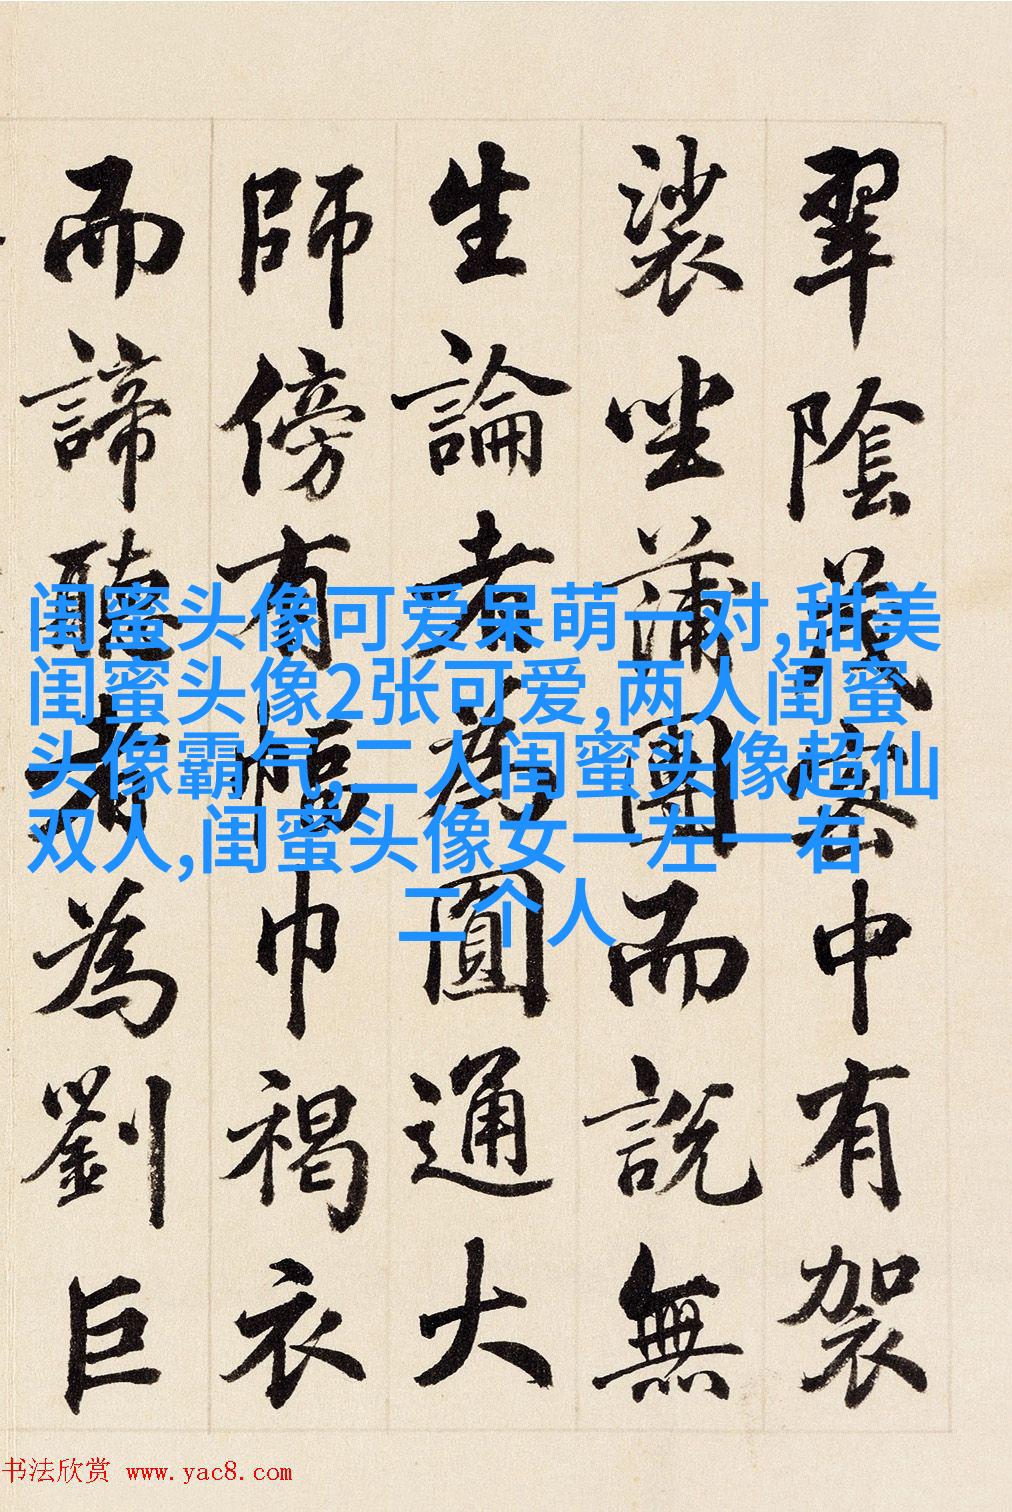 翠陰茂密中有袈
裟坐蒲團而說無
生論者為圓通大
師傍有幅巾褐衣
而諦聽者為劉巨
闺蜜头像可爱呆萌一对,甜美
闺蜜头像2张可爱,两人闺蜜
头像霸气,二人闺蜜头像超仙
双人,闺蜜头像女一左一右
二个人
书法欣赏 www.yac8.com